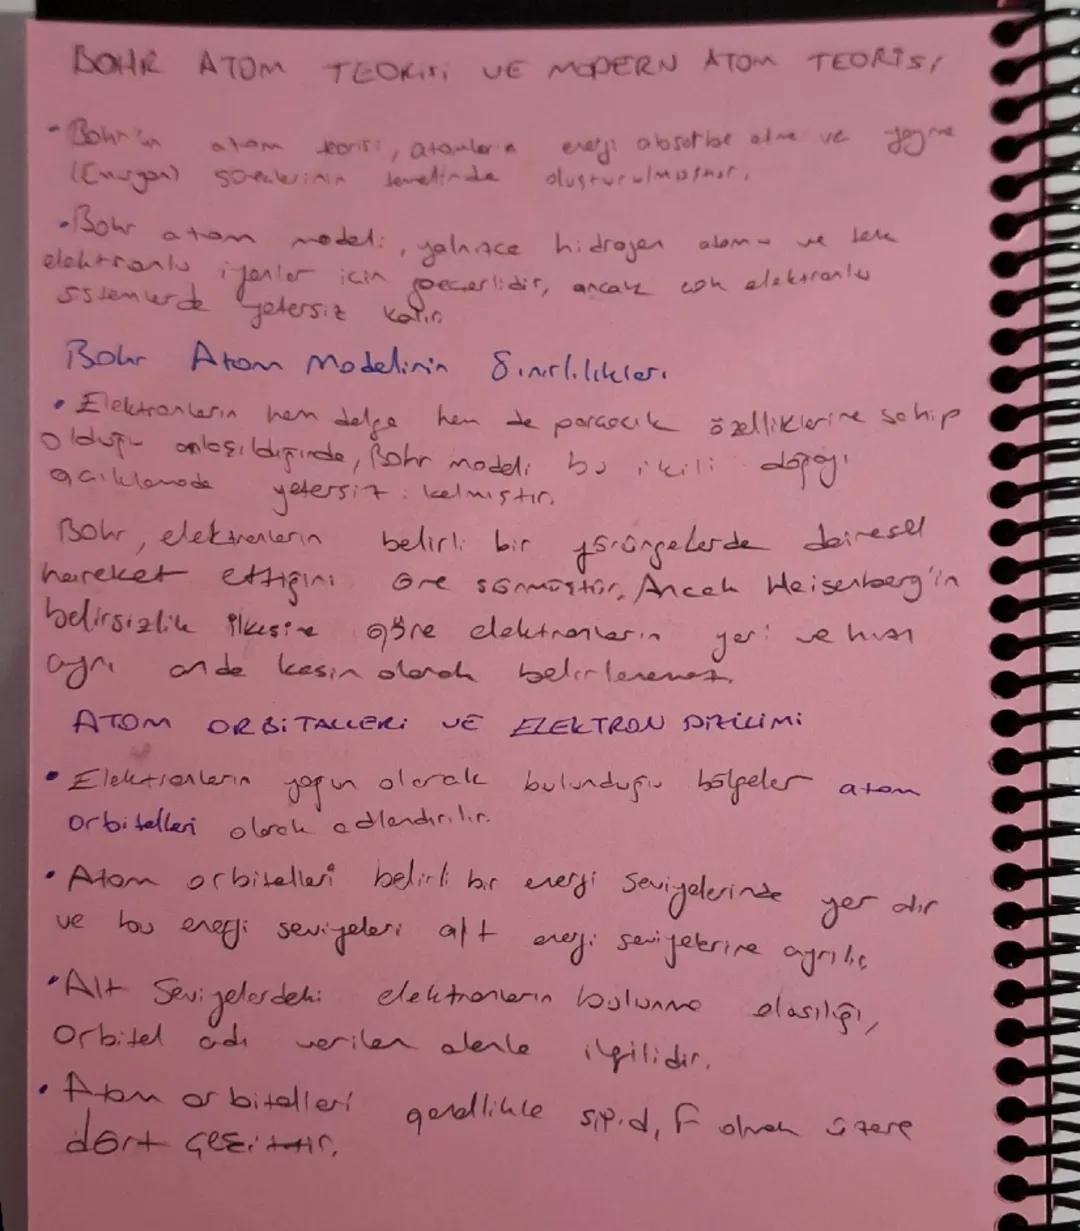 BOHR ATOM TEORİSİ VE MODERN ATOM TEORİSİ
• Bohr'un atom teorisi, atomların enerji absorbe etme ve yayma
(Emisyon) süreçlerinin temelinde oluşturulmuştur.
• Bohr atom modeli, yalnızca hidrojen atomu ve tek
elektronlu iyonlar için geçerlidir, ancak çok elektronlu
sistemlerde yetersiz kalır.
Bohr Atom Modelinin Sınırlılıkları
• Elektronların hem dalga hem de parçacık özelliklerine sahip
olduğu anlaşıldığında, Bohr modeli bu ikili doğayı
açıklamada yetersiz kalmıştır.
Bohr, elektronların belirli bir yörüngelerde dairesel
hareket ettiğini öne sürmüştür. Ancak Heisenberg'in
belirsizlik ilkesine göre elektronların yeri ve hızı
aynı anda kesin olarak belirlenemez.
ATOM ORBİTALLERİ VE ELEKTRON DİZİLİMİ
• Elektronların yoğun olarak bulunduğu bölgeler atom
orbitalleri olarak adlandırılır.
• Atom orbitalleri belirli bir enerji seviyelerinde yer alır
ve bu enerji seviyeleri alt enerji seviyelerine ayrılır
• Alt seviyelerdeki elektronların bulunma olasılığı,
Orbital adı verilen alanla ilgilidir.
• Atom orbitalleri genellikle s,p,d,f olmak üzere
dört çeşittir.